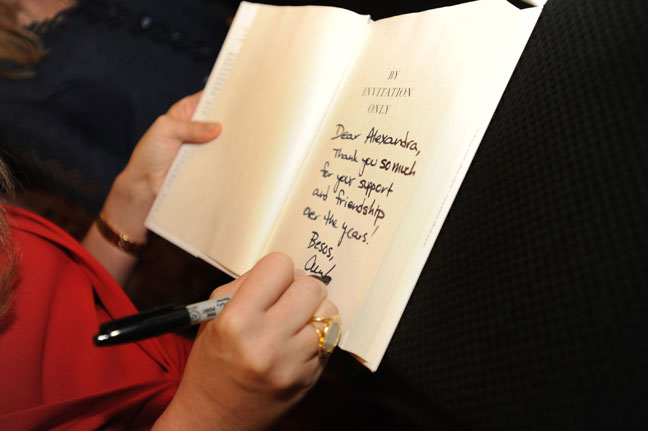 BY
INVITATION
ONLY
Dear Alexandra,
Thank you so much
for your support
and friendship
over the years!
Besos,